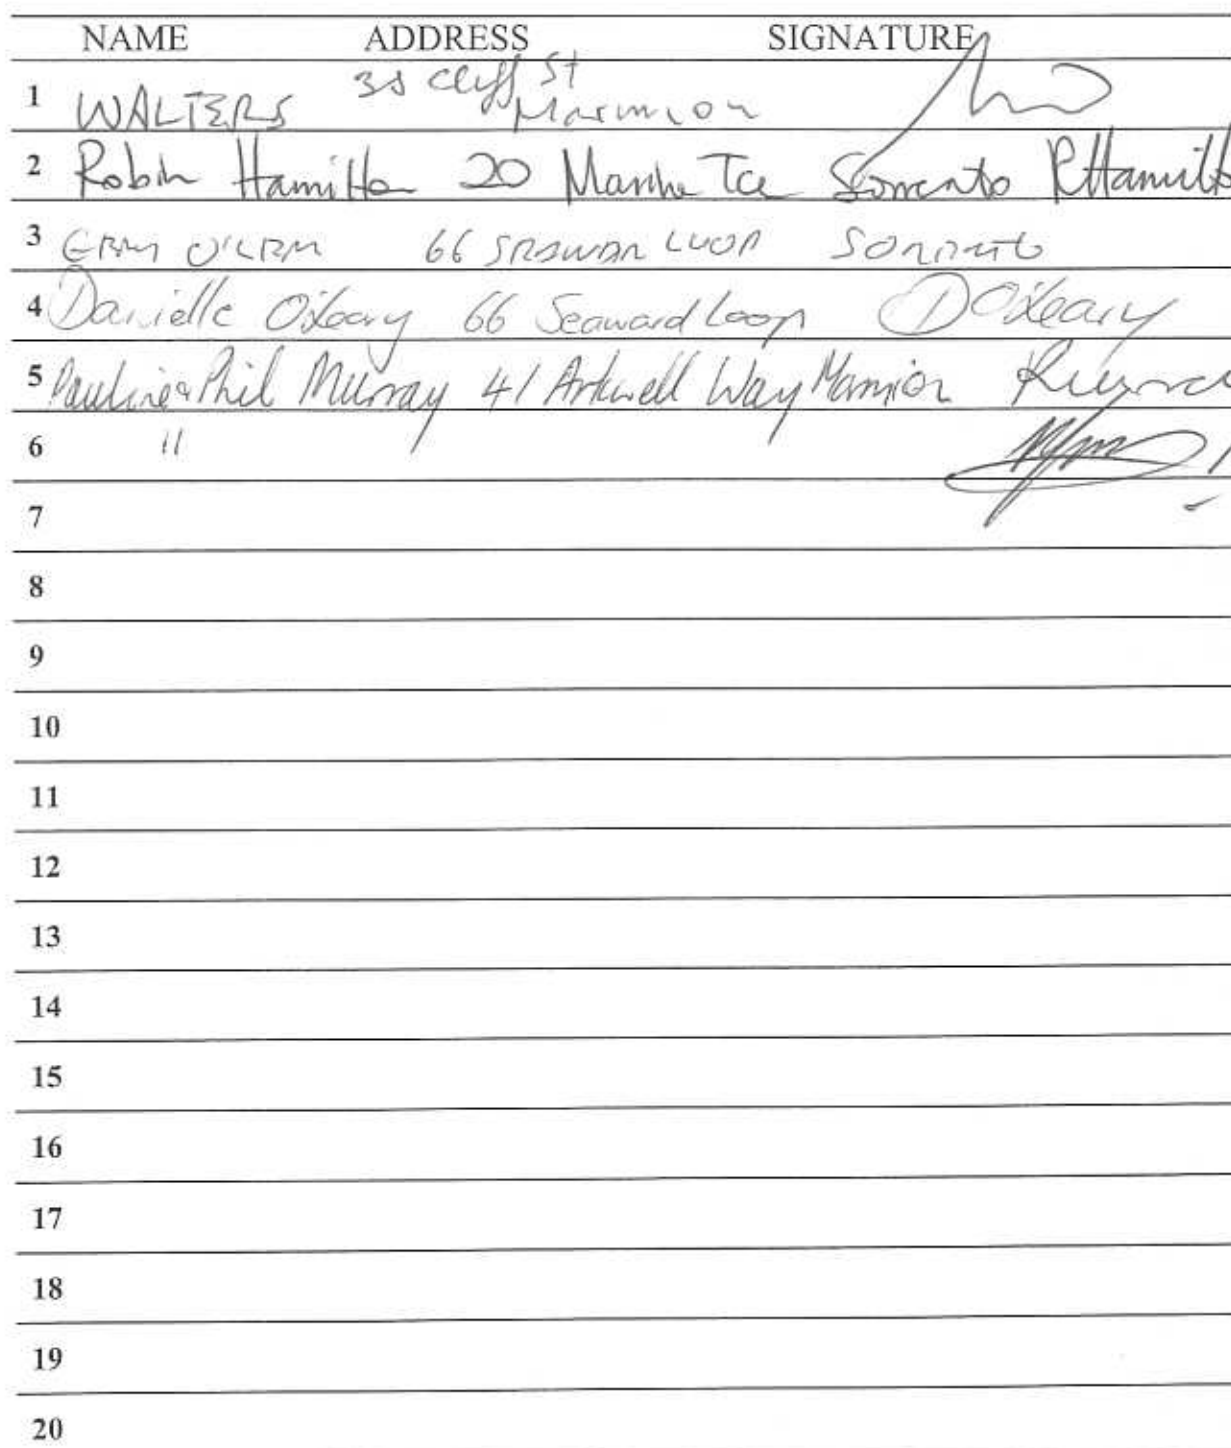 NAME ADDRESS SIGNATURE
1 WALTERS 35 Cliff St
Marmion
2 Robin Hamilton 20 Marine Tce Sorrento RHamilto
3 O'LEARY 66 SEAWARD LOOP SORRENTO
4 Danielle O'Leary 66 Seaward Loop DO'Leary
5 Pauline & Phil Murray 41 Arkwell Way Marmion
6 "
7
8
9
10
11
12
13
14
15
16
17
18
19
20